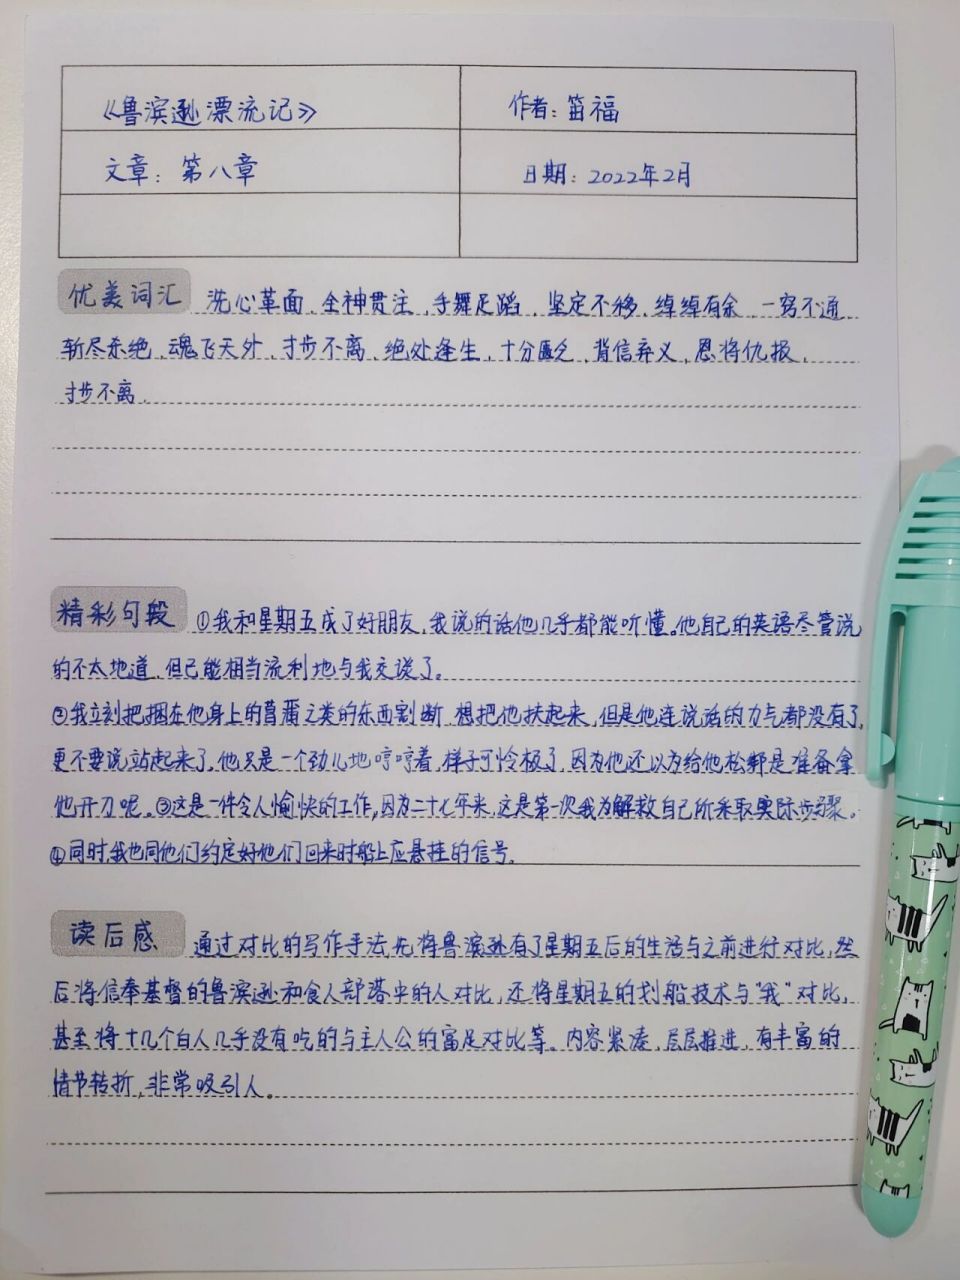 《鲁滨逊漂流记》 作者：笛福
文章：第八章 日期：2022年2月
优美词汇 洗心革面、全神贯注、手舞足蹈、坚定不移、绰绰有余、一窍不通
斩尽杀绝、魂飞天外、寸步不离、绝处逢生、十分匮乏、背信弃义、恩将仇报、
寸步不离、
精彩句段 ①我和星期五成了好朋友，我说的话他几乎都能听懂。他自己的英语尽管说
的不太地道，但已能相当流利地与我交谈了。
②我立刻把捆在他身上的菖蒲之类的东西割断，想把他扶起来，但是他连说话的力气都没有了，
更不要说站起来了，他只是一个劲儿地哼哼着，样子可怜极了，因为他还以为给他松绑是准备拿
他开刀呢。③这是一件令人愉快的工作，因为二十七年来，这是第一次我为解救自己所采取实际步骤。
④同时，我也同他们约定好他们回来时船上应悬挂的信号。
读后感 通过对比的写作手法，先将鲁滨逊有了星期五后的生活与之前进行对比，然
后将信奉基督的鲁滨逊和食人部落中的人对比，还将星期五的划船技术与“我”对比，
甚至将十几个白人几乎没有吃的与主人公的富足对比等。内容紧凑，层层推进，有丰富的
情节转折，非常吸引人。